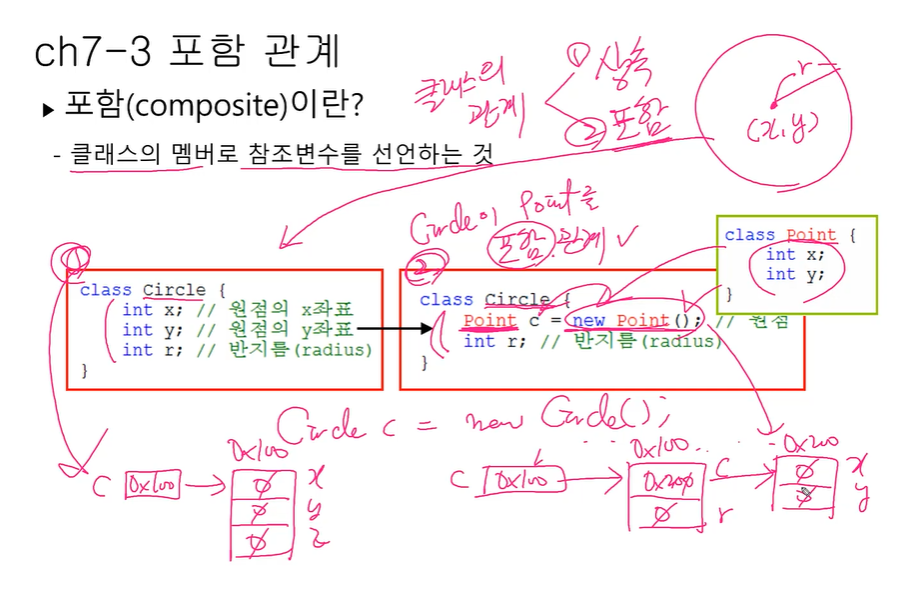 ch7-3 포함 관계
▶ 포함(composite)이란?
- 클래스의 멤버로 참조변수를 선언하는 것
클래스의 관계
① 상속
② 포함
r
(x,y)
Circle이 Point를
포함 관계 ✓
①
class Circle {
int x; // 원점의 x좌표
int y; // 원점의 y좌표
int r; // 반지름(radius)
}
②
class Circle {
Point c = new Point(); // 원점
int r; // 반지름(radius)
}
class Point {
int x;
int y;
}
Circle c = new Circle();
C 0x100
0x100
0 x
0 y
0 z
C 0x100
0x100
0x200 c
0 r
0x200
0 x
0 y